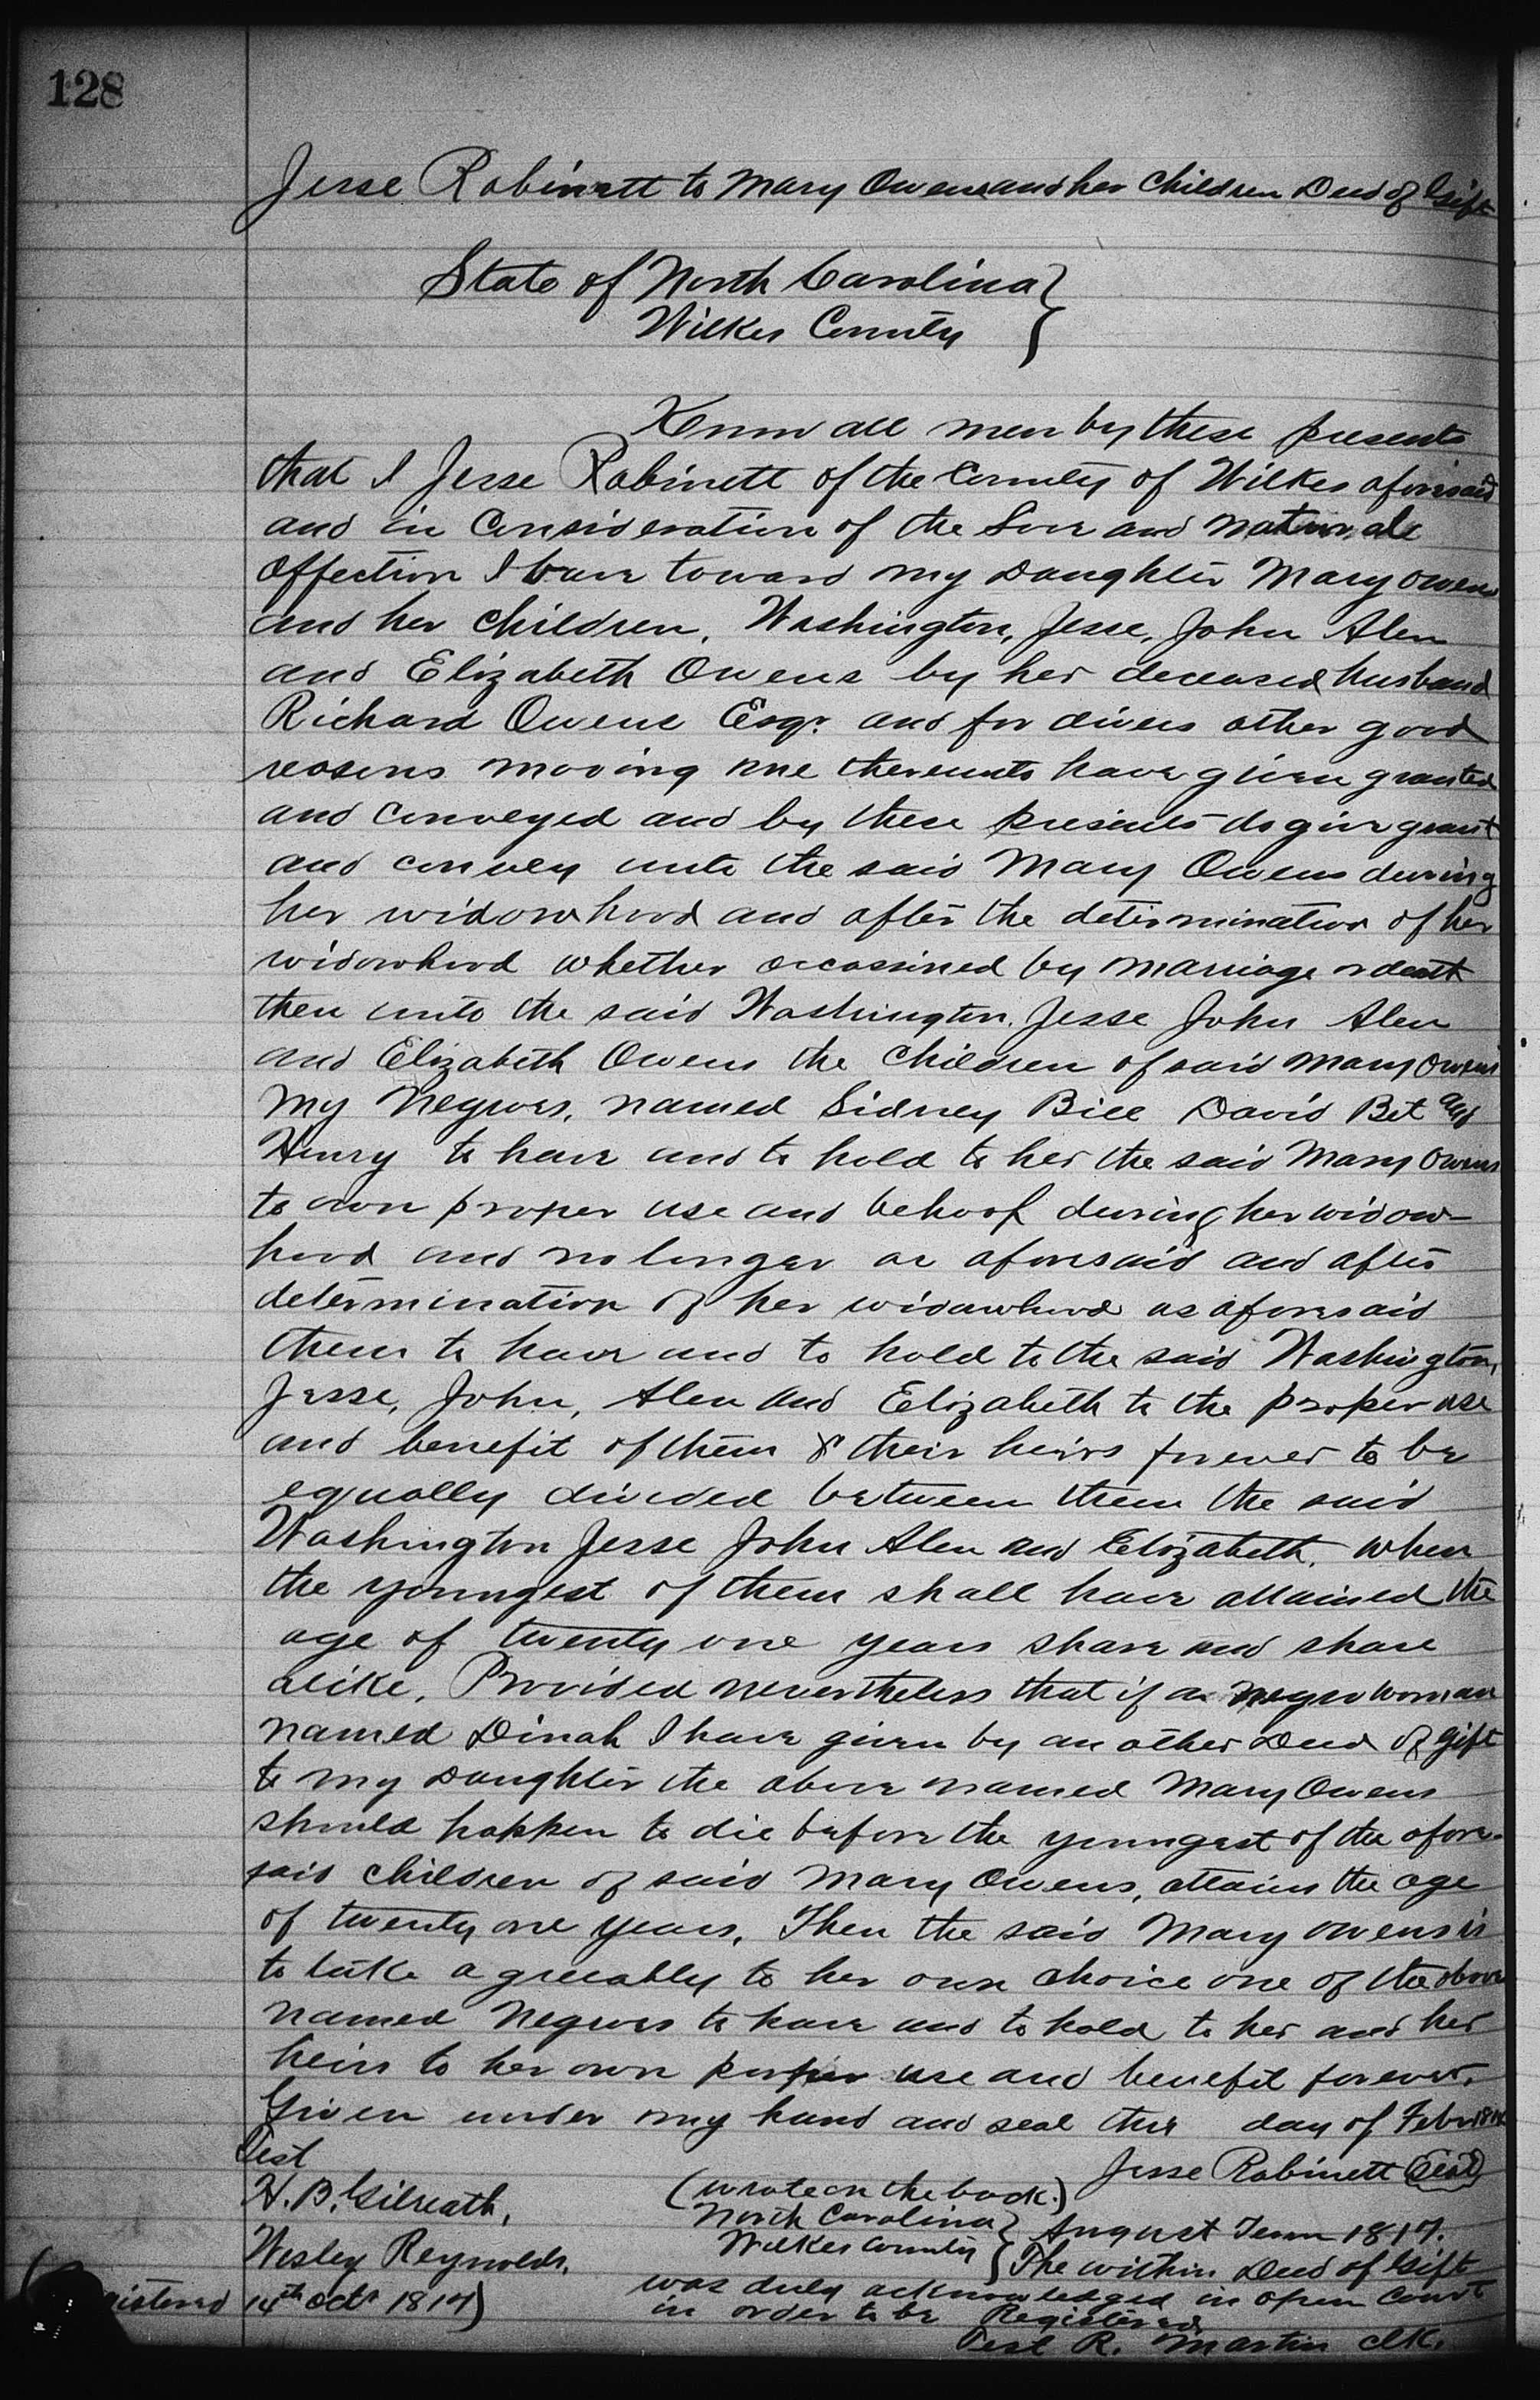 128
Jesse Robinett to Mary Owens and her children Deed of Gift
State of North Carolina }
Wilkes County }
Know all men by these presents
that I Jesse Robinett of the County of Wilkes aforesaid
and in Consideration of the Love and natural
affection I bear toward my Daughter Mary Owens
and her children, Washington, Jesse, John Alen
and Elizabeth Owens by her deceased husband
Richard Owens Esqr. and for divers other good
reasons moving me thereunto have given granted
and conveyed and by these presents do give grant
and convey unto the said Mary Owens during
her widowhood and after the determination of her
widowhood whether occassined by marriage or death
then unto the said Washington, Jesse John Alen
and Elizabeth Owens the Children of said Mary Owens
my Negroes, named Sidney Bill David Bet and
Henry to have and to hold to her the said Mary Owens
to own proper use and behoof during her widow-
hood and no longer as aforesaid and after
determination of her widowhood as aforesaid
them to have and to hold to the said Washington,
Jesse, John, Alen and Elizabeth to the proper use
and benefit of them & their heirs forever to be
equally divided between them the said
Washington Jesse John Alen and Elizabeth, when
the youngest of them shall have attained the
age of twenty one years share and share
alike, Provided nevertheless that if a negro woman
named Dinah I have given by an other Deed of gift
to my Daughter the above named Mary Owens
should happen to die before the youngest of the afore-
said children of said Mary Owens, attains the age
of twenty one years, Then the said Mary Owens is
to take agreeably to her own choice one of the above
named Negroes to have and to hold to her and her
heirs to her own proper use and benefit forever.
Given under my hand and seal this day of Febr
Test
Jesse Robinett (Seal)
H. B. Gilreath,
(wrote on the back.)
North Carolina }
Wilkes County }
August Term 1817.
Wesley Reynolds,
The within Deed of Gift
was duly acknowledged in open Court
in order to be Registered
14th Octr 1817)
Test R. Martin clk.